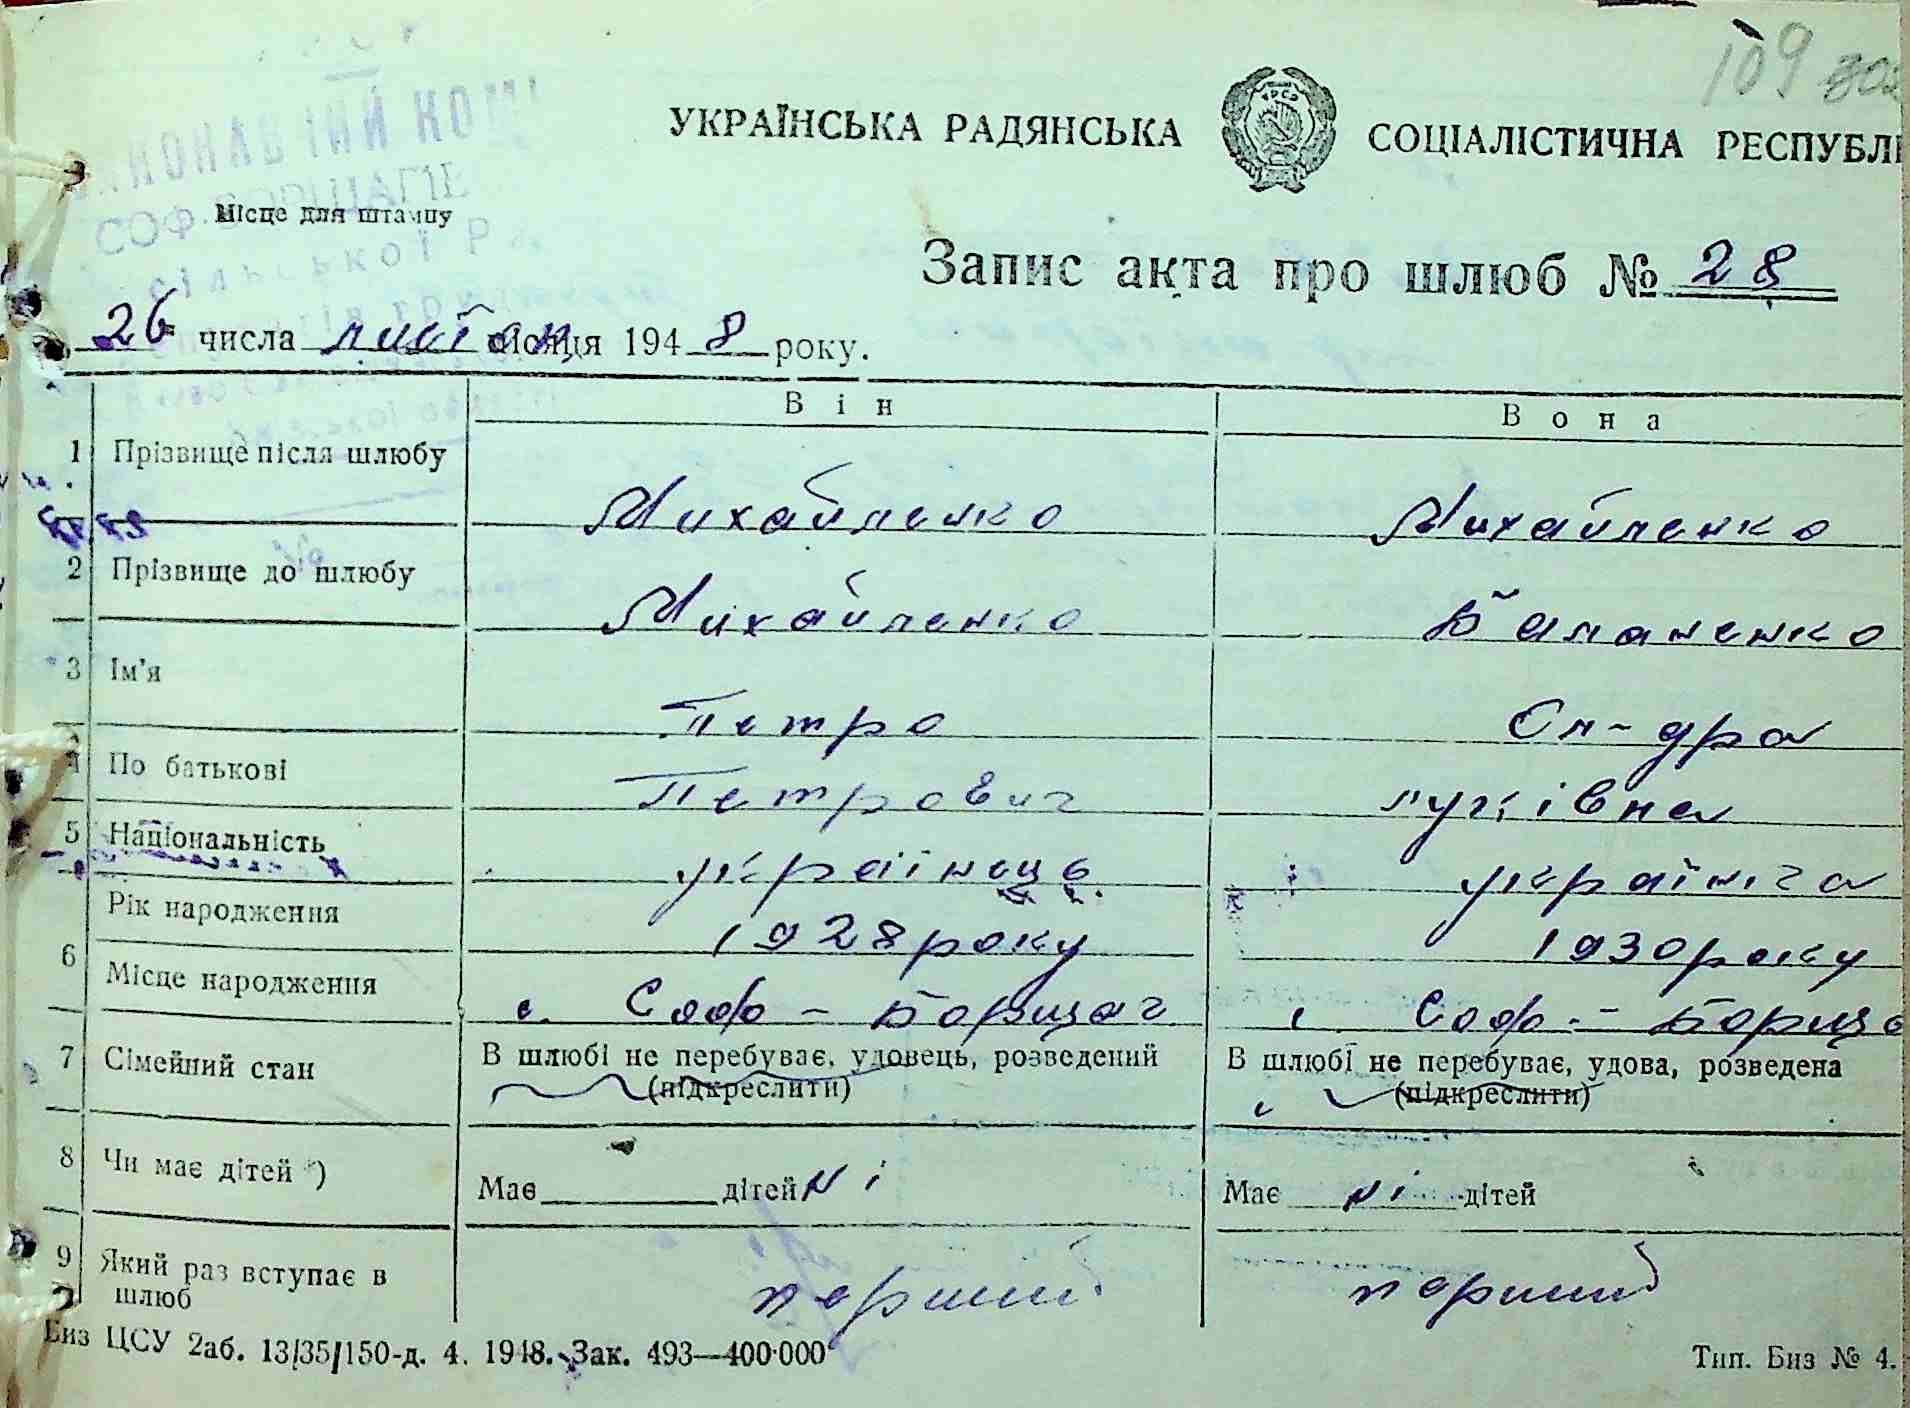 109 зв
УКРАЇНСЬКА РАДЯНСЬКА СОЦІАЛІСТИЧНА РЕСПУБЛІ
Місце для штампу
СОФ. БОРЩАГІВ
сільської Р
Запис акта про шлюб № 28
26 числа листоп місяця 1948 року.
Він Вона
1 Прізвище після шлюбу Михайленко Михайленко
2 Прізвище до шлюбу Михайленко Баланенко
3 Ім'я Петро Ол-дра
4 По батькові Петрович луківна
5 Національність українець українка
6 Рік народження 1928 року 1930 року
Місце народження с. Соф - Борщаг с. Соф. - Борща
7 Сімейний стан В шлюбі не перебуває, удовець, розведений В шлюбі не перебуває, удова, розведена
(підкреслити) (підкреслити)
8 Чи має дітей *) Має дітей ні Має ні дітей
9 Який раз вступає в шлюб перший перший
Биз ЦСУ 2аб. 13/35/150-д. 4. 1948. Зак. 493—400·000 Тип. Биз № 4.